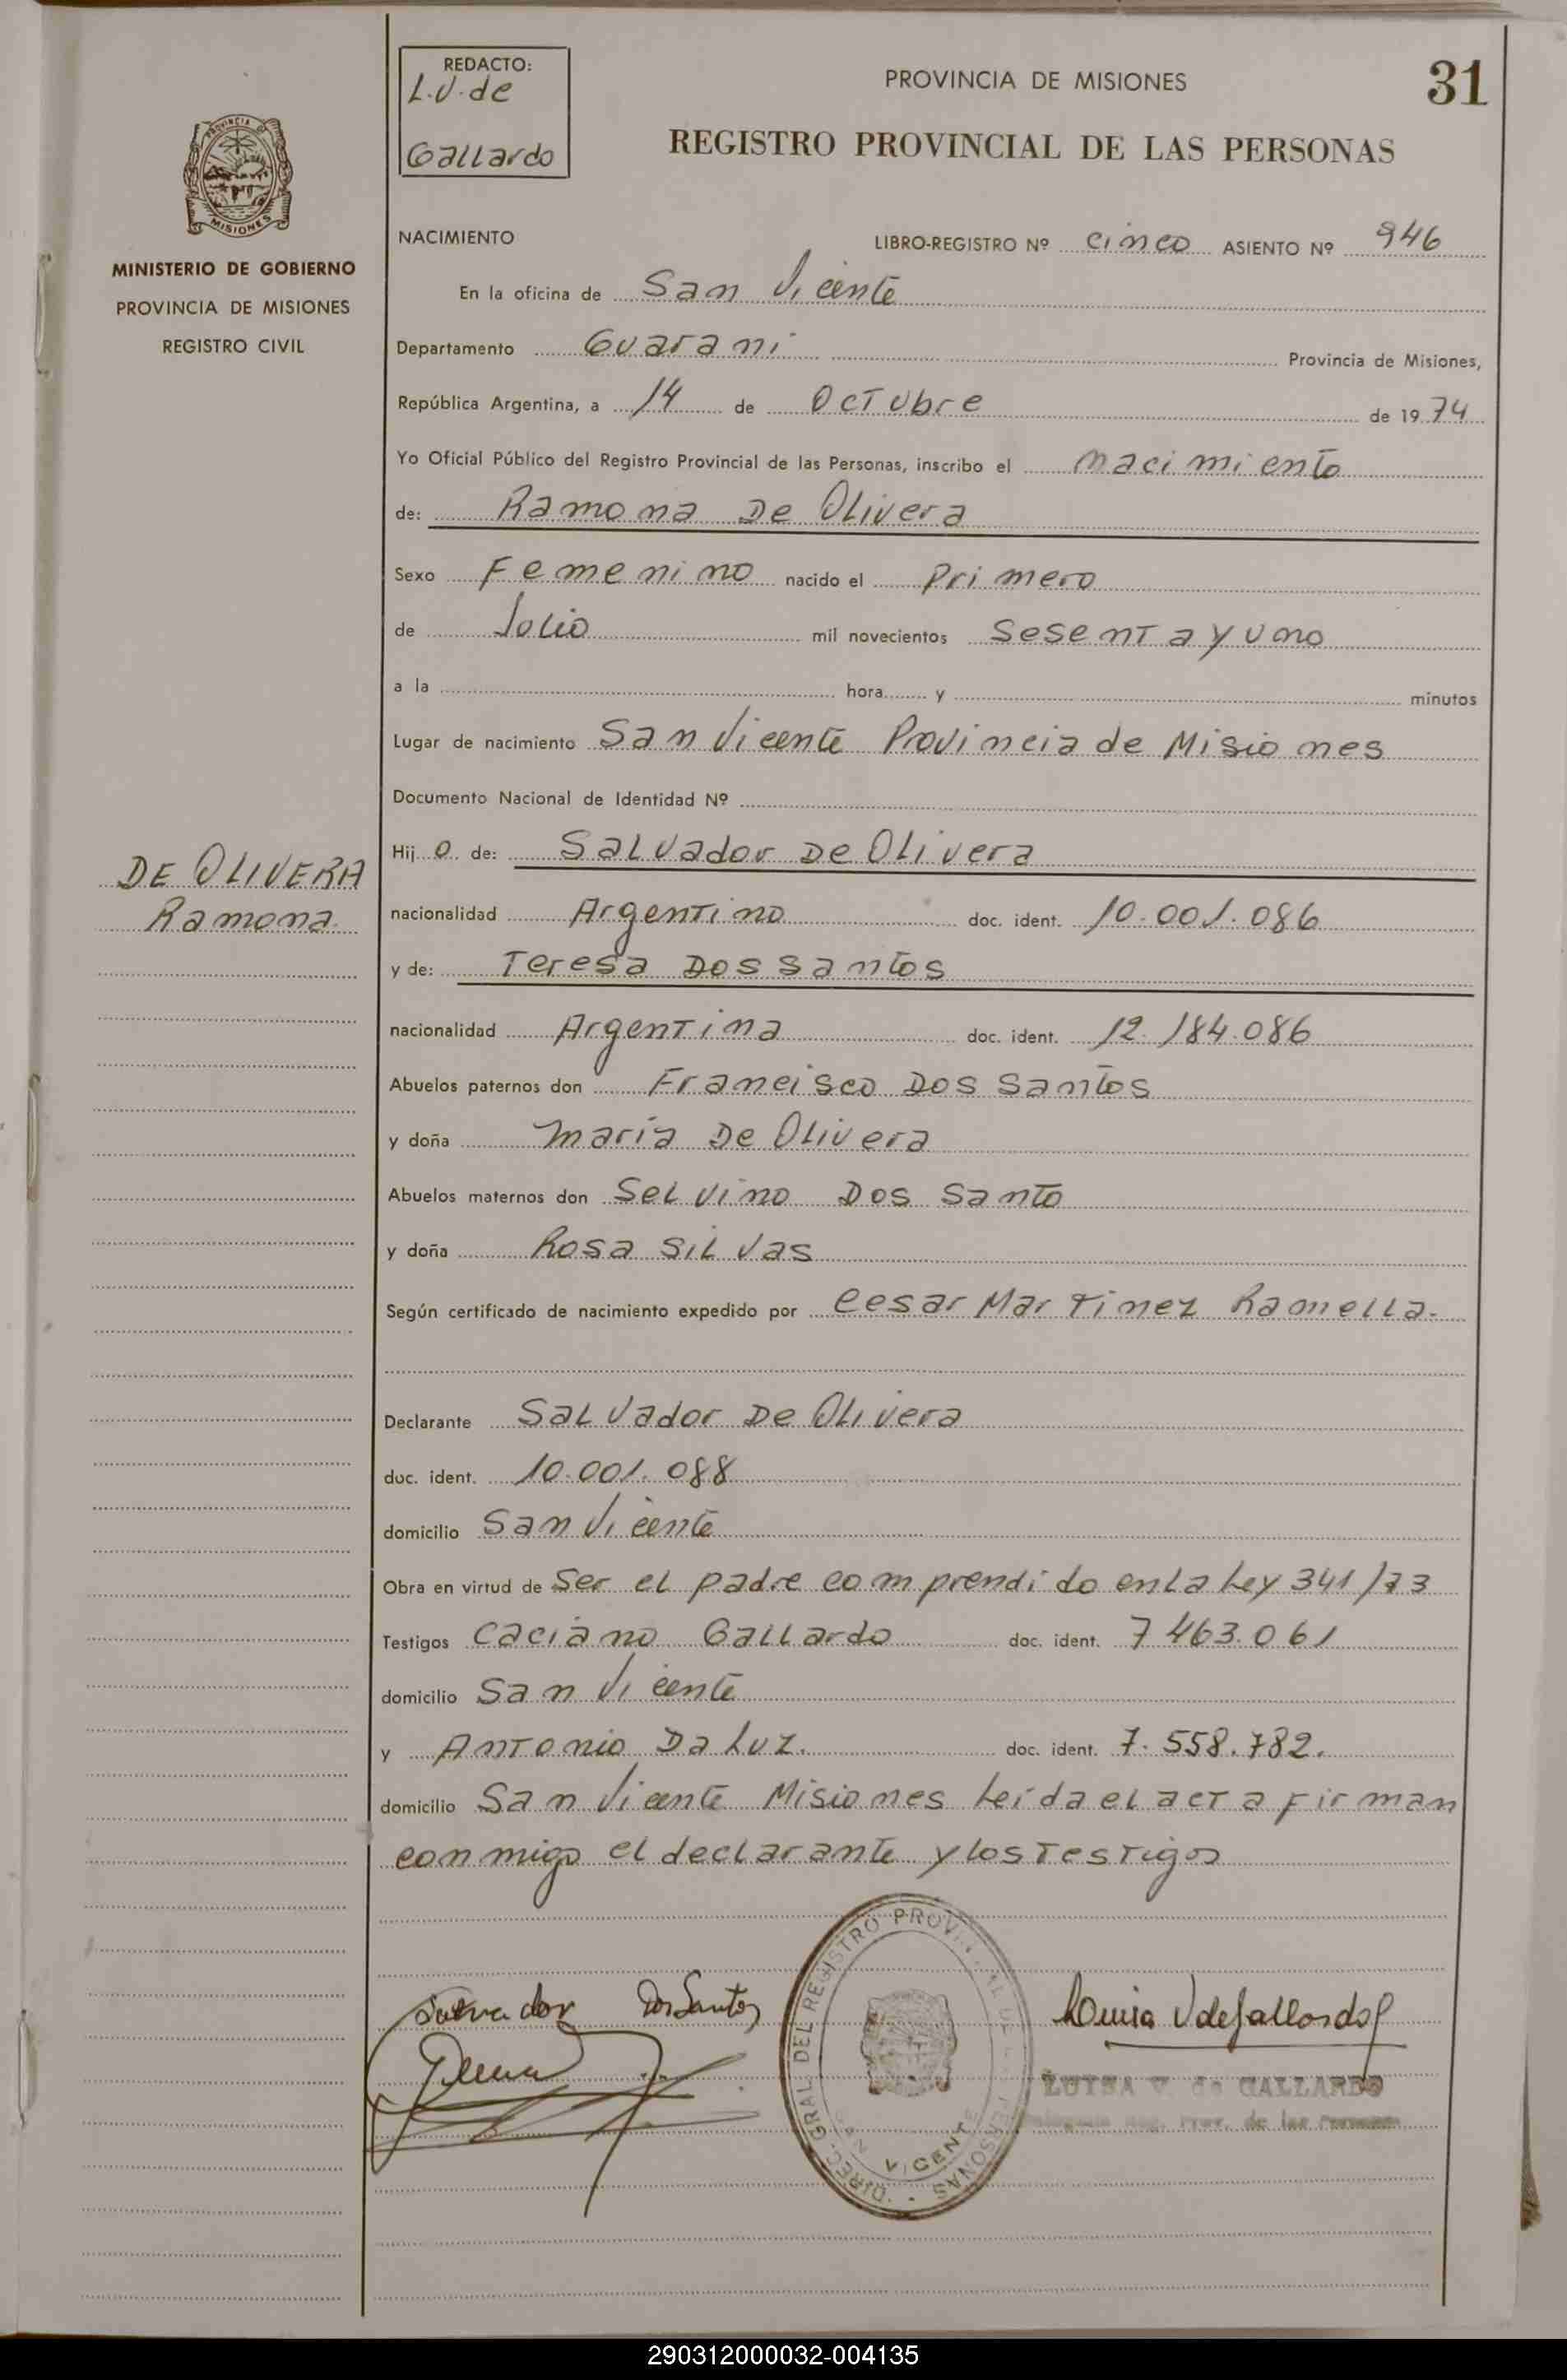 REDACTO:
L.V. de
Gallardo
PROVINCIA DE MISIONES
31
REGISTRO PROVINCIAL DE LAS PERSONAS
PROVINCIA DE
MISIONES
MINISTERIO DE GOBIERNO
PROVINCIA DE MISIONES
REGISTRO CIVIL
NACIMIENTO LIBRO-REGISTRO Nº cinco ASIENTO Nº 946
En la oficina de San Vicente
Departamento Guarani Provincia de Misiones,
República Argentina, a 14 de Octubre de 1974
Yo Oficial Público del Registro Provincial de las Personas, inscribo el nacimiento
de: Ramona De Olivera
Sexo Femenino nacido el Primero
de Julio mil novecientos Sesenta y uno
a la hora y minutos
Lugar de nacimiento San Vicente Provincia de Misiones
Documento Nacional de Identidad Nº
Hij o de: Salvador De Olivera
DE OLIVERA
Ramona.
nacionalidad Argentino doc. ident. 10.001.086
y de: Teresa Dos Santos
nacionalidad Argentina doc. ident. 12.184.086
Abuelos paternos don Francisco Dos Santos
y doña María De Olivera
Abuelos maternos don Selvino Dos Santo
y doña Rosa Silvas
Según certificado de nacimiento expedido por Cesar Martinez Ramella.
Declarante Salvador De Olivera
doc. ident. 10.001.088
domicilio San Vicente
Obra en virtud de Ser el padre comprendido en la Ley 341/73
Testigos Caciano Gallardo doc. ident. 7463.061
domicilio San Vicente
y Antonio Da Luz. doc. ident. 7.558.782.
domicilio San Vicente Misiones Leída el acta firman
conmigo el declarante y los Testigos
Salvador Dos Santos
Luisa V de Gallardo
LUISA V. de GALLARDO
DIREC. GRAL. DEL REGISTRO PROVINCIAL DE LAS PERSONAS
SAN VICENTE
290312000032-004135